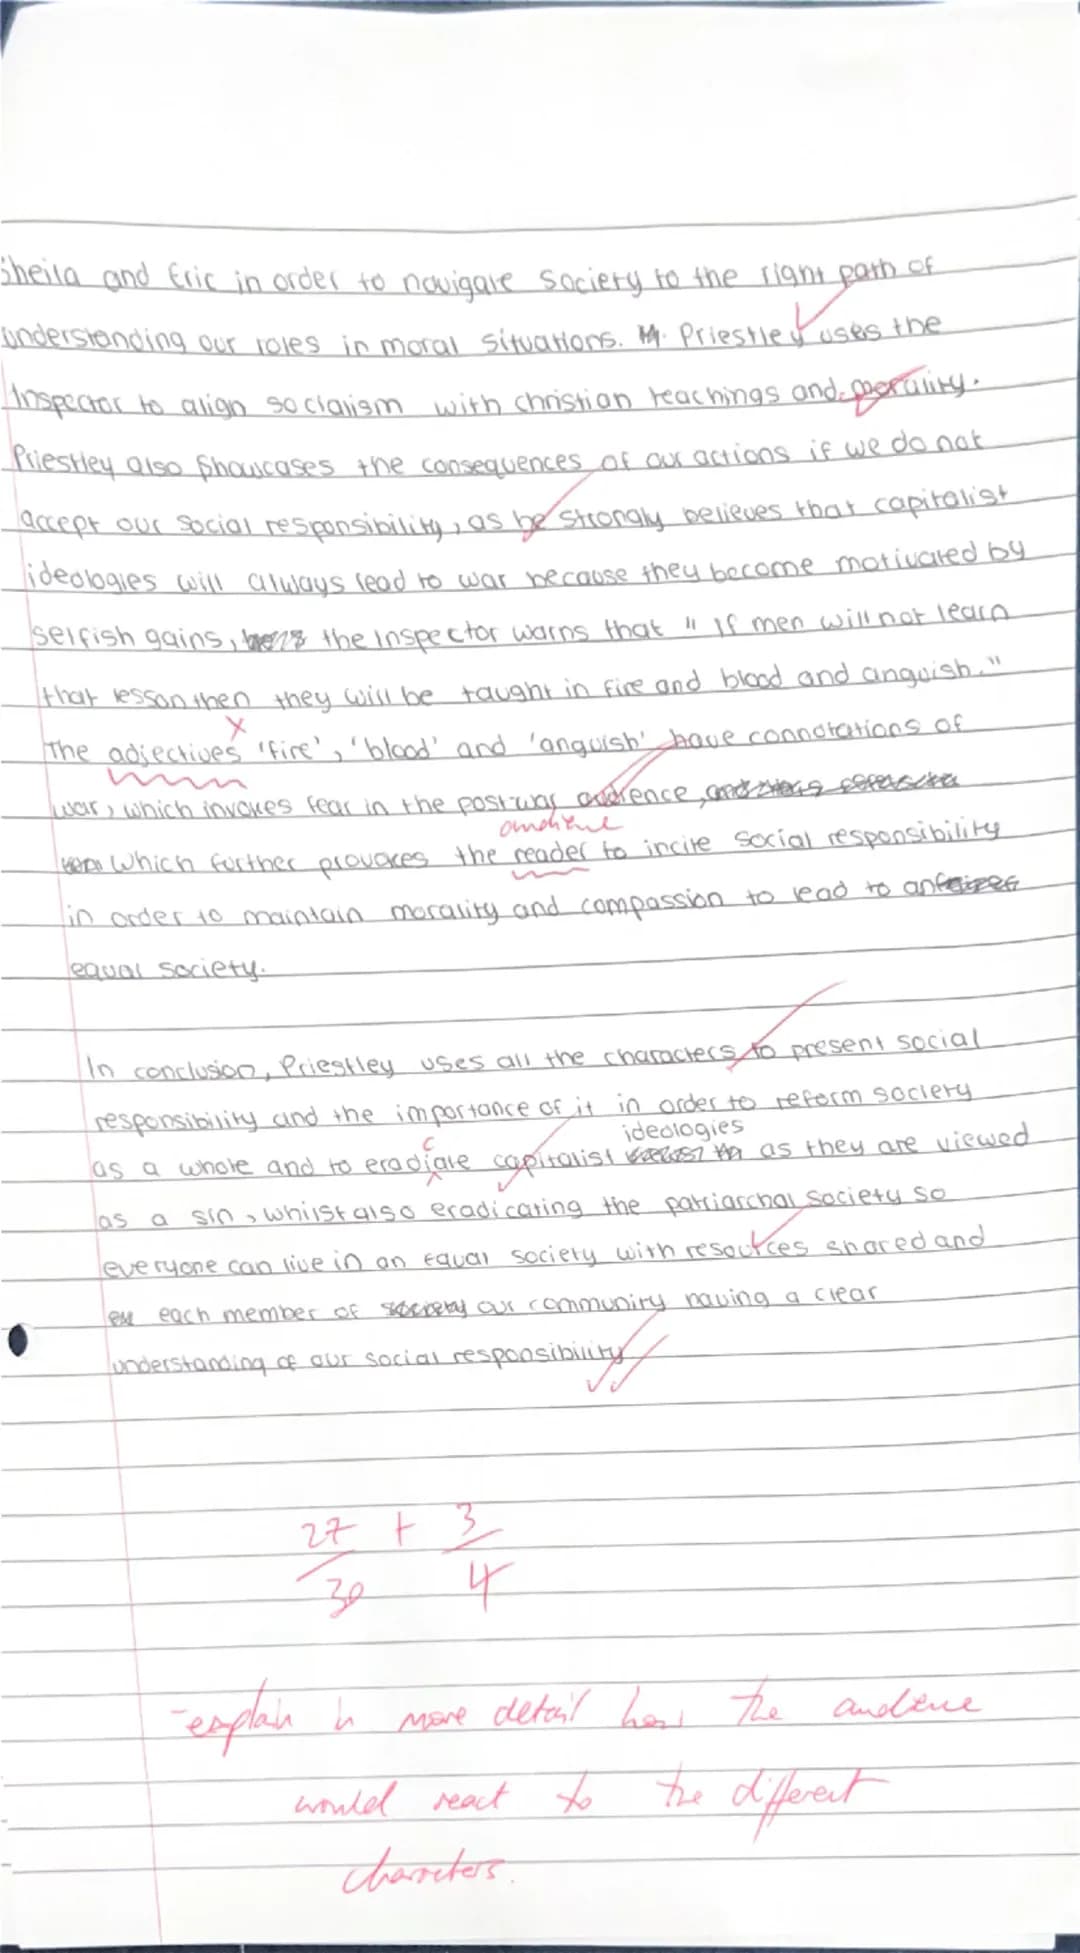 Sheila and Eric in order to navigate society to the right path of
understanding our roles in moral situations. Priestley uses the
Inspector to align socialism with christian teachings and morality.
Priestley also showcases the consequences of our actions if we do not
accept our social responsibility, as he strongly believes that capitalist
ideologies will always lead to war because they become motivated by
selfish gains, the Inspector warns that "If men will not learn
that lesson then they will be taught in fire and blood and anguish."
x
The adjectives 'fire', 'blood' and 'anguish' have connotations of
war, which invokes fear in the postwar audience,
audience
which further provokes the reader to incite social responsibility
in order to maintain morality and compassion to lead to an
equal society.
In conclusion, Priestley uses all the characters to present social
responsibility and the importance of it in order to reform society
c ideologies
as a whole and to eradiate capitalist as they are viewed
as a sin, whilst also eradicating the patriarchal society so
everyone can live in an equal society with resources shared and
each member of our community having a clear
understanding of our social responsibility
27 + 3
30 4
-explain in more detail how the audience
would react to the different
characters.